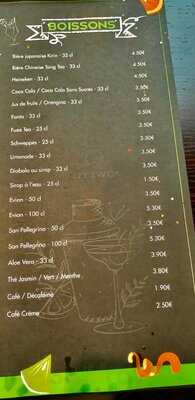 BOISSONS
Bière japonaise Kirin - 33 cl 4.50€
Bière Chinoise Tsing Tao - 33 cl 4.50€
Heineken - 33 cl 4.00€
Coca Cola / Coca Cola Sans Sucres - 33 cl 3.50€
Jus de fruits / Orangina - 33 cl 3.50€
Fanta - 33 cl 3.50€
Fuze Tea - 25 cl 3.50€
Schweppes - 25 cl 3.50€
Limonade - 33 cl 3.50€
Diabolo au sirop - 33 cl 3.50€
Sirop à l'eau - 25 cl
Evian - 50 cl 3.50€
Evian - 100 cl 5.30€
San Pellegrino - 50 cl 3.50€
San Pellegrino - 100 cl 5.30€
Aloe Vera - 33 cl 3.90€
Thé Jasmin / Vert / Menthe 3.80€
Café / Décaféiné 1.90€
Café Crème 2.50€